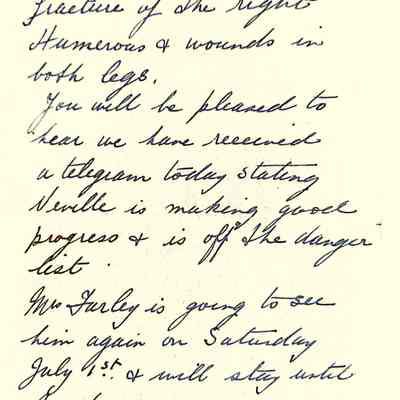 fracture of the right
Humerous & wounds in
both legs.
You will be pleased to
hear we have received
a telegram today stating
Neville is making good
progress & is off the danger
list.
Mrs Farley is going to see
him again on Saturday
July 1st. & will stay until